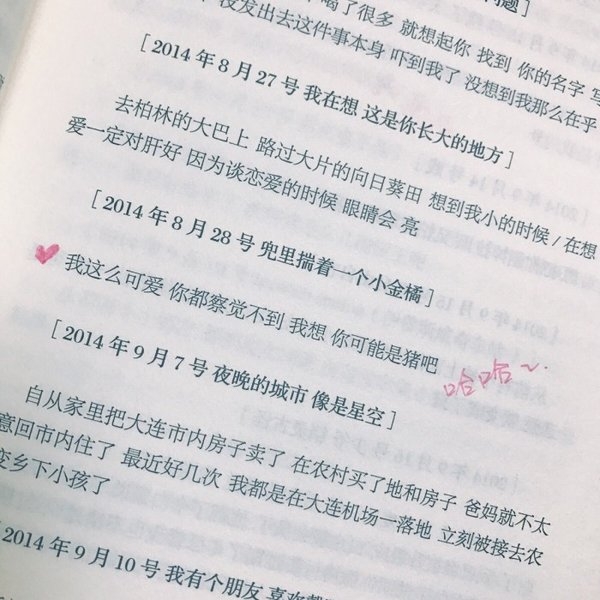 喝了很多 就想起你 找到 你的名字 写
没发出去这件事本身 吓到我了 没想到我那么在乎
[ 2014 年 8 月 27 号 我在想 这是你长大的地方 ]
去柏林的大巴上 路过大片的向日葵田 想到我小的时候 / 在想
爱一定对肝好 因为谈恋爱的时候 眼睛会 亮
[ 2014 年 8 月 28 号 兜里揣着一个小金橘 ]
我这么可爱 你都察觉不到 我想 你可能是猪吧
哈哈~
[ 2014 年 9 月 7 号 夜晚的城市 像是星空 ]
自从家里把大连市内房子卖了 在农村买了地和房子 爸妈就不太
意回市内住了 最近好几次 我都是在大连机场一落地 立刻被接去农
变乡下小孩了
[ 2014 年 9 月 10 号 我有个朋友 喜欢